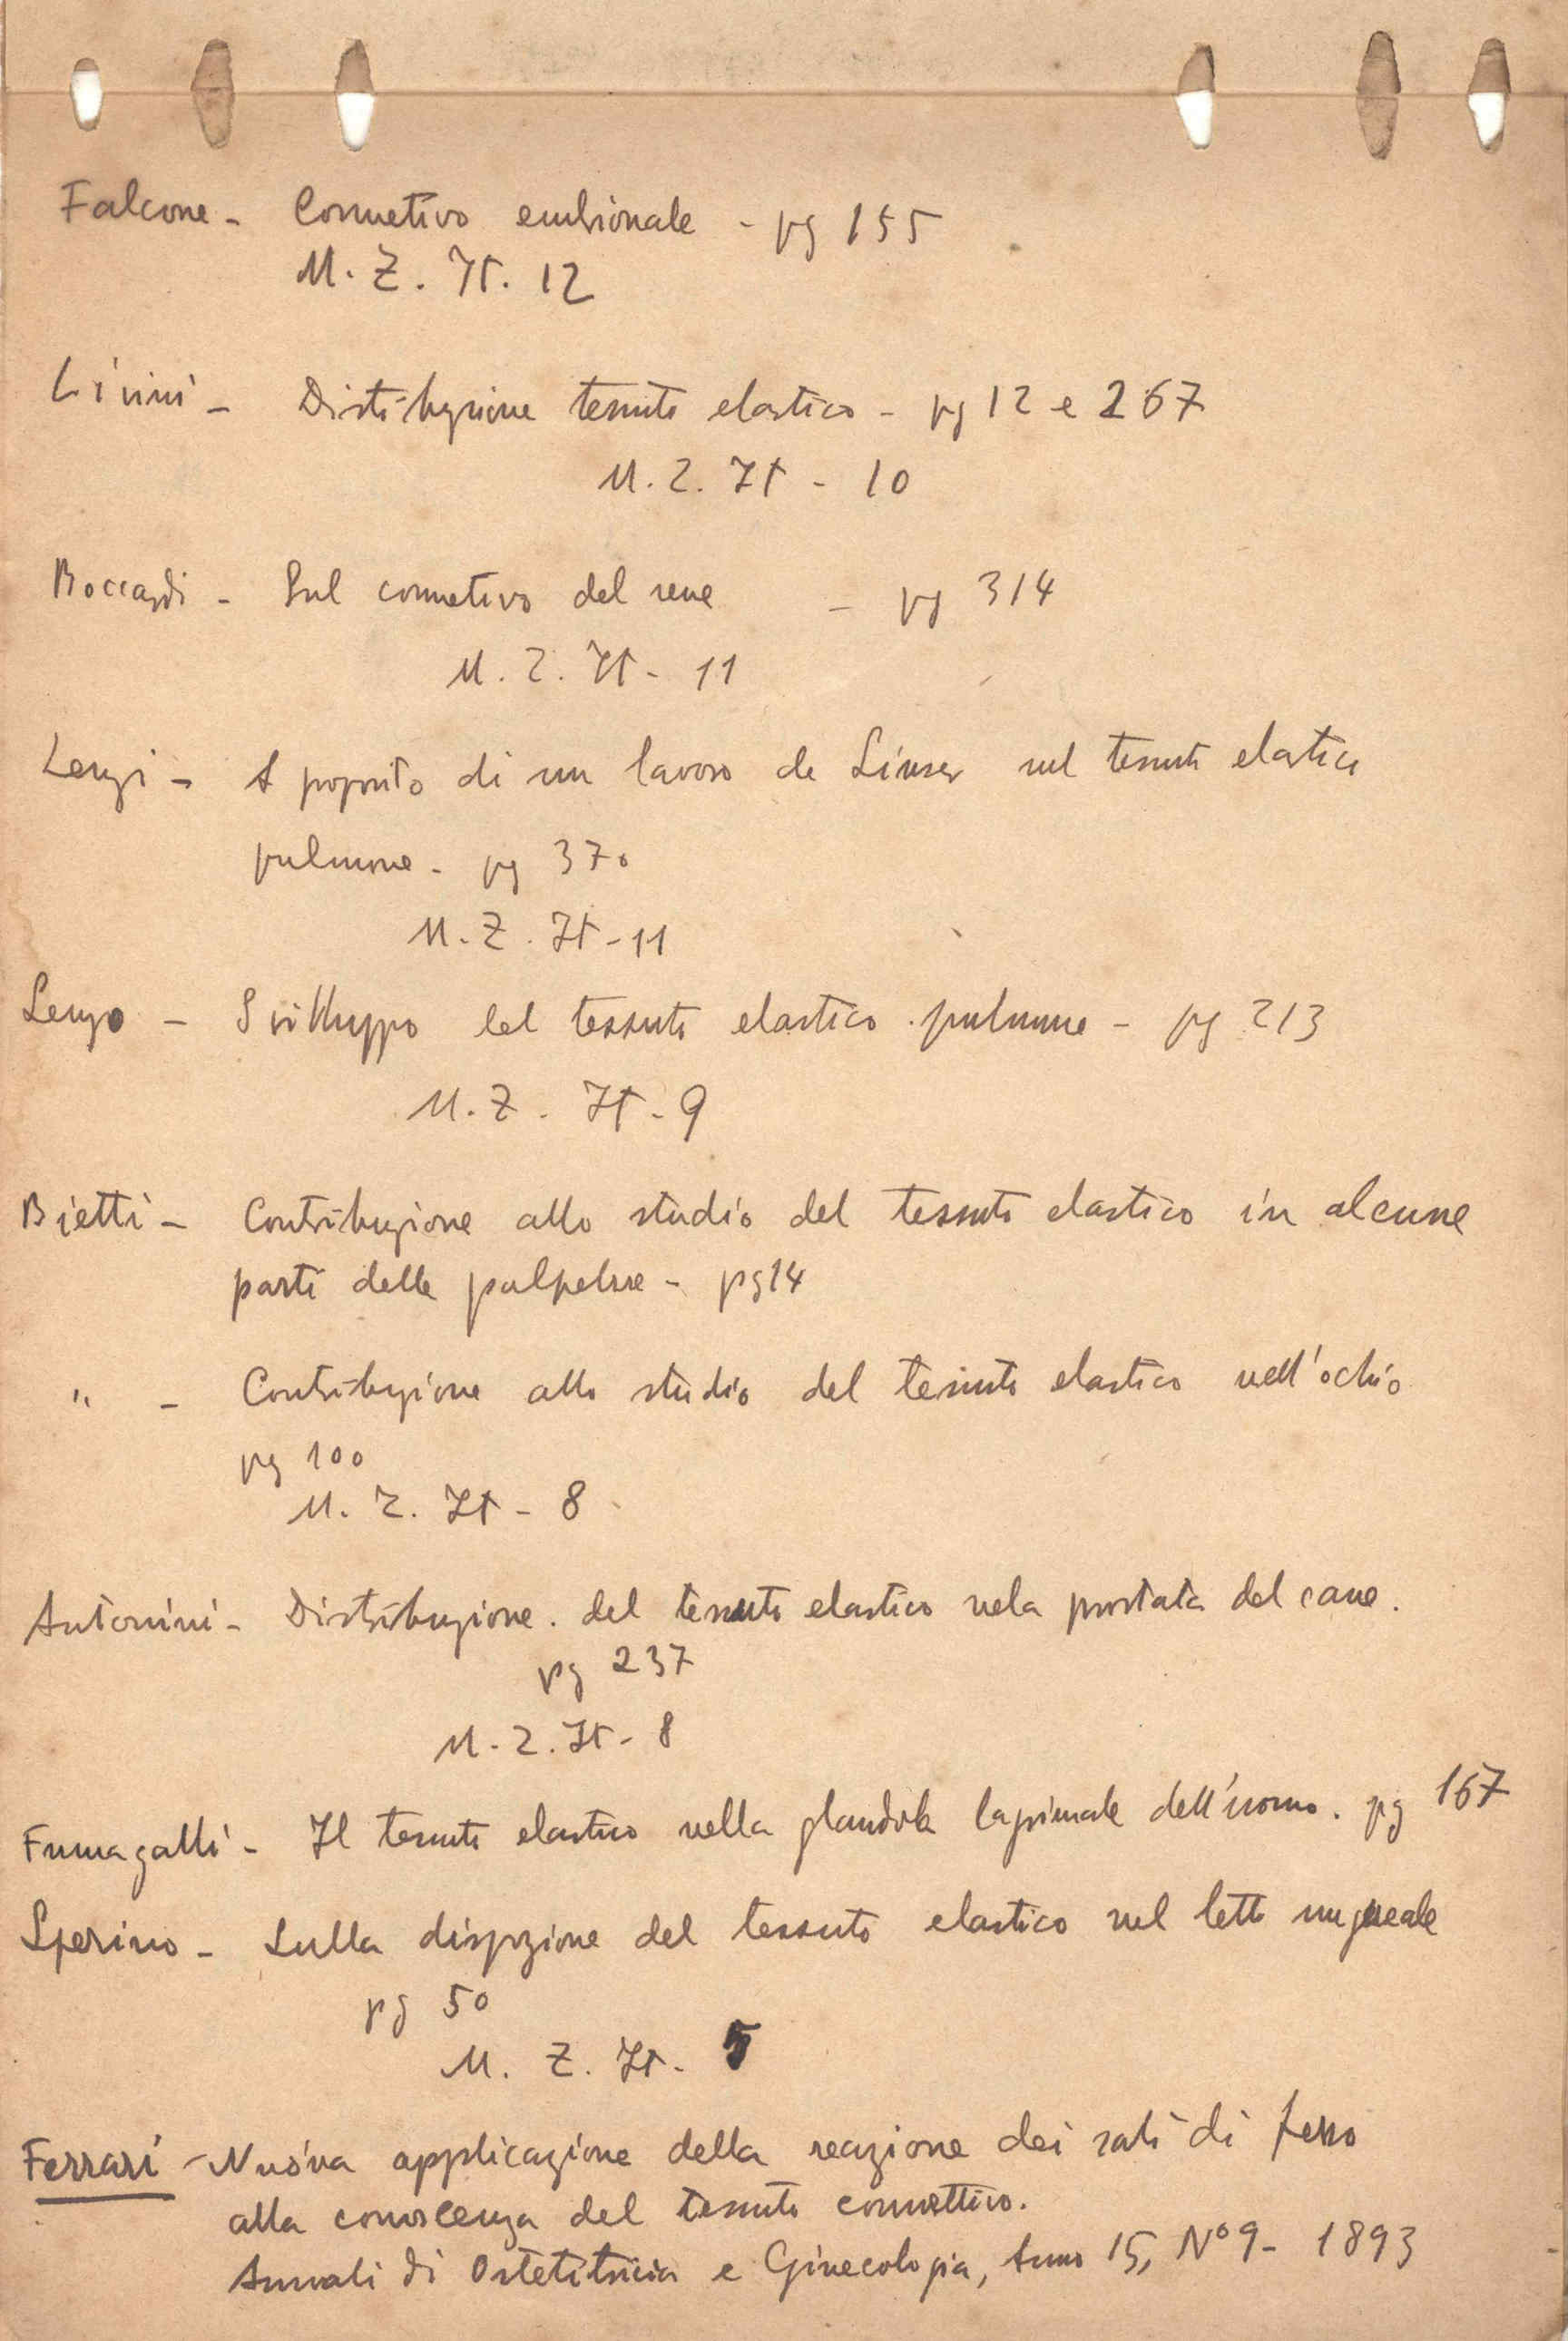 Falcone - Connetivo embrionale - pg 155
M. Z. It. 12
Livini - Distribuzione tessuto elastico - pg 12 e 267
M. Z. It - 10
Boccardi - Sul connetivo del rene - pg 314
M. Z. It - 11
Lenzi - A proposito di un lavoro de Linser sul tessuto elastico
pulmone - pg 370
M. Z. It - 11
Lenzo - Svilluppo del tessuto elastico pulmone - pg 213
M. Z. It - 9
Bietti - Contribuzione allo studio del tessuto elastico in alcune
parti delle palpebre - pg 14
" - Contribuzione allo studio del tessuto elastico nell'ochio
pg 100
M. Z. It - 8
Antonini - Distribuzione del tessuto elastico nela prostata del cane.
pg 237
M. Z. It - 8
Fumagalli - Il tessuto elastico nella glandola lagrimale dell'uomo. pg 167
Sperino - Sulla dispozione del tessuto elastico nel letto ungueale
pg 50
M. Z. It - 5
Ferrari - Nuova applicazione della reazione dei sali di ferro
alla conoscenza del tessuto connettivo.
Annali di Ostetitricia e Ginecologia, Anno 15, Nº 9 - 1893